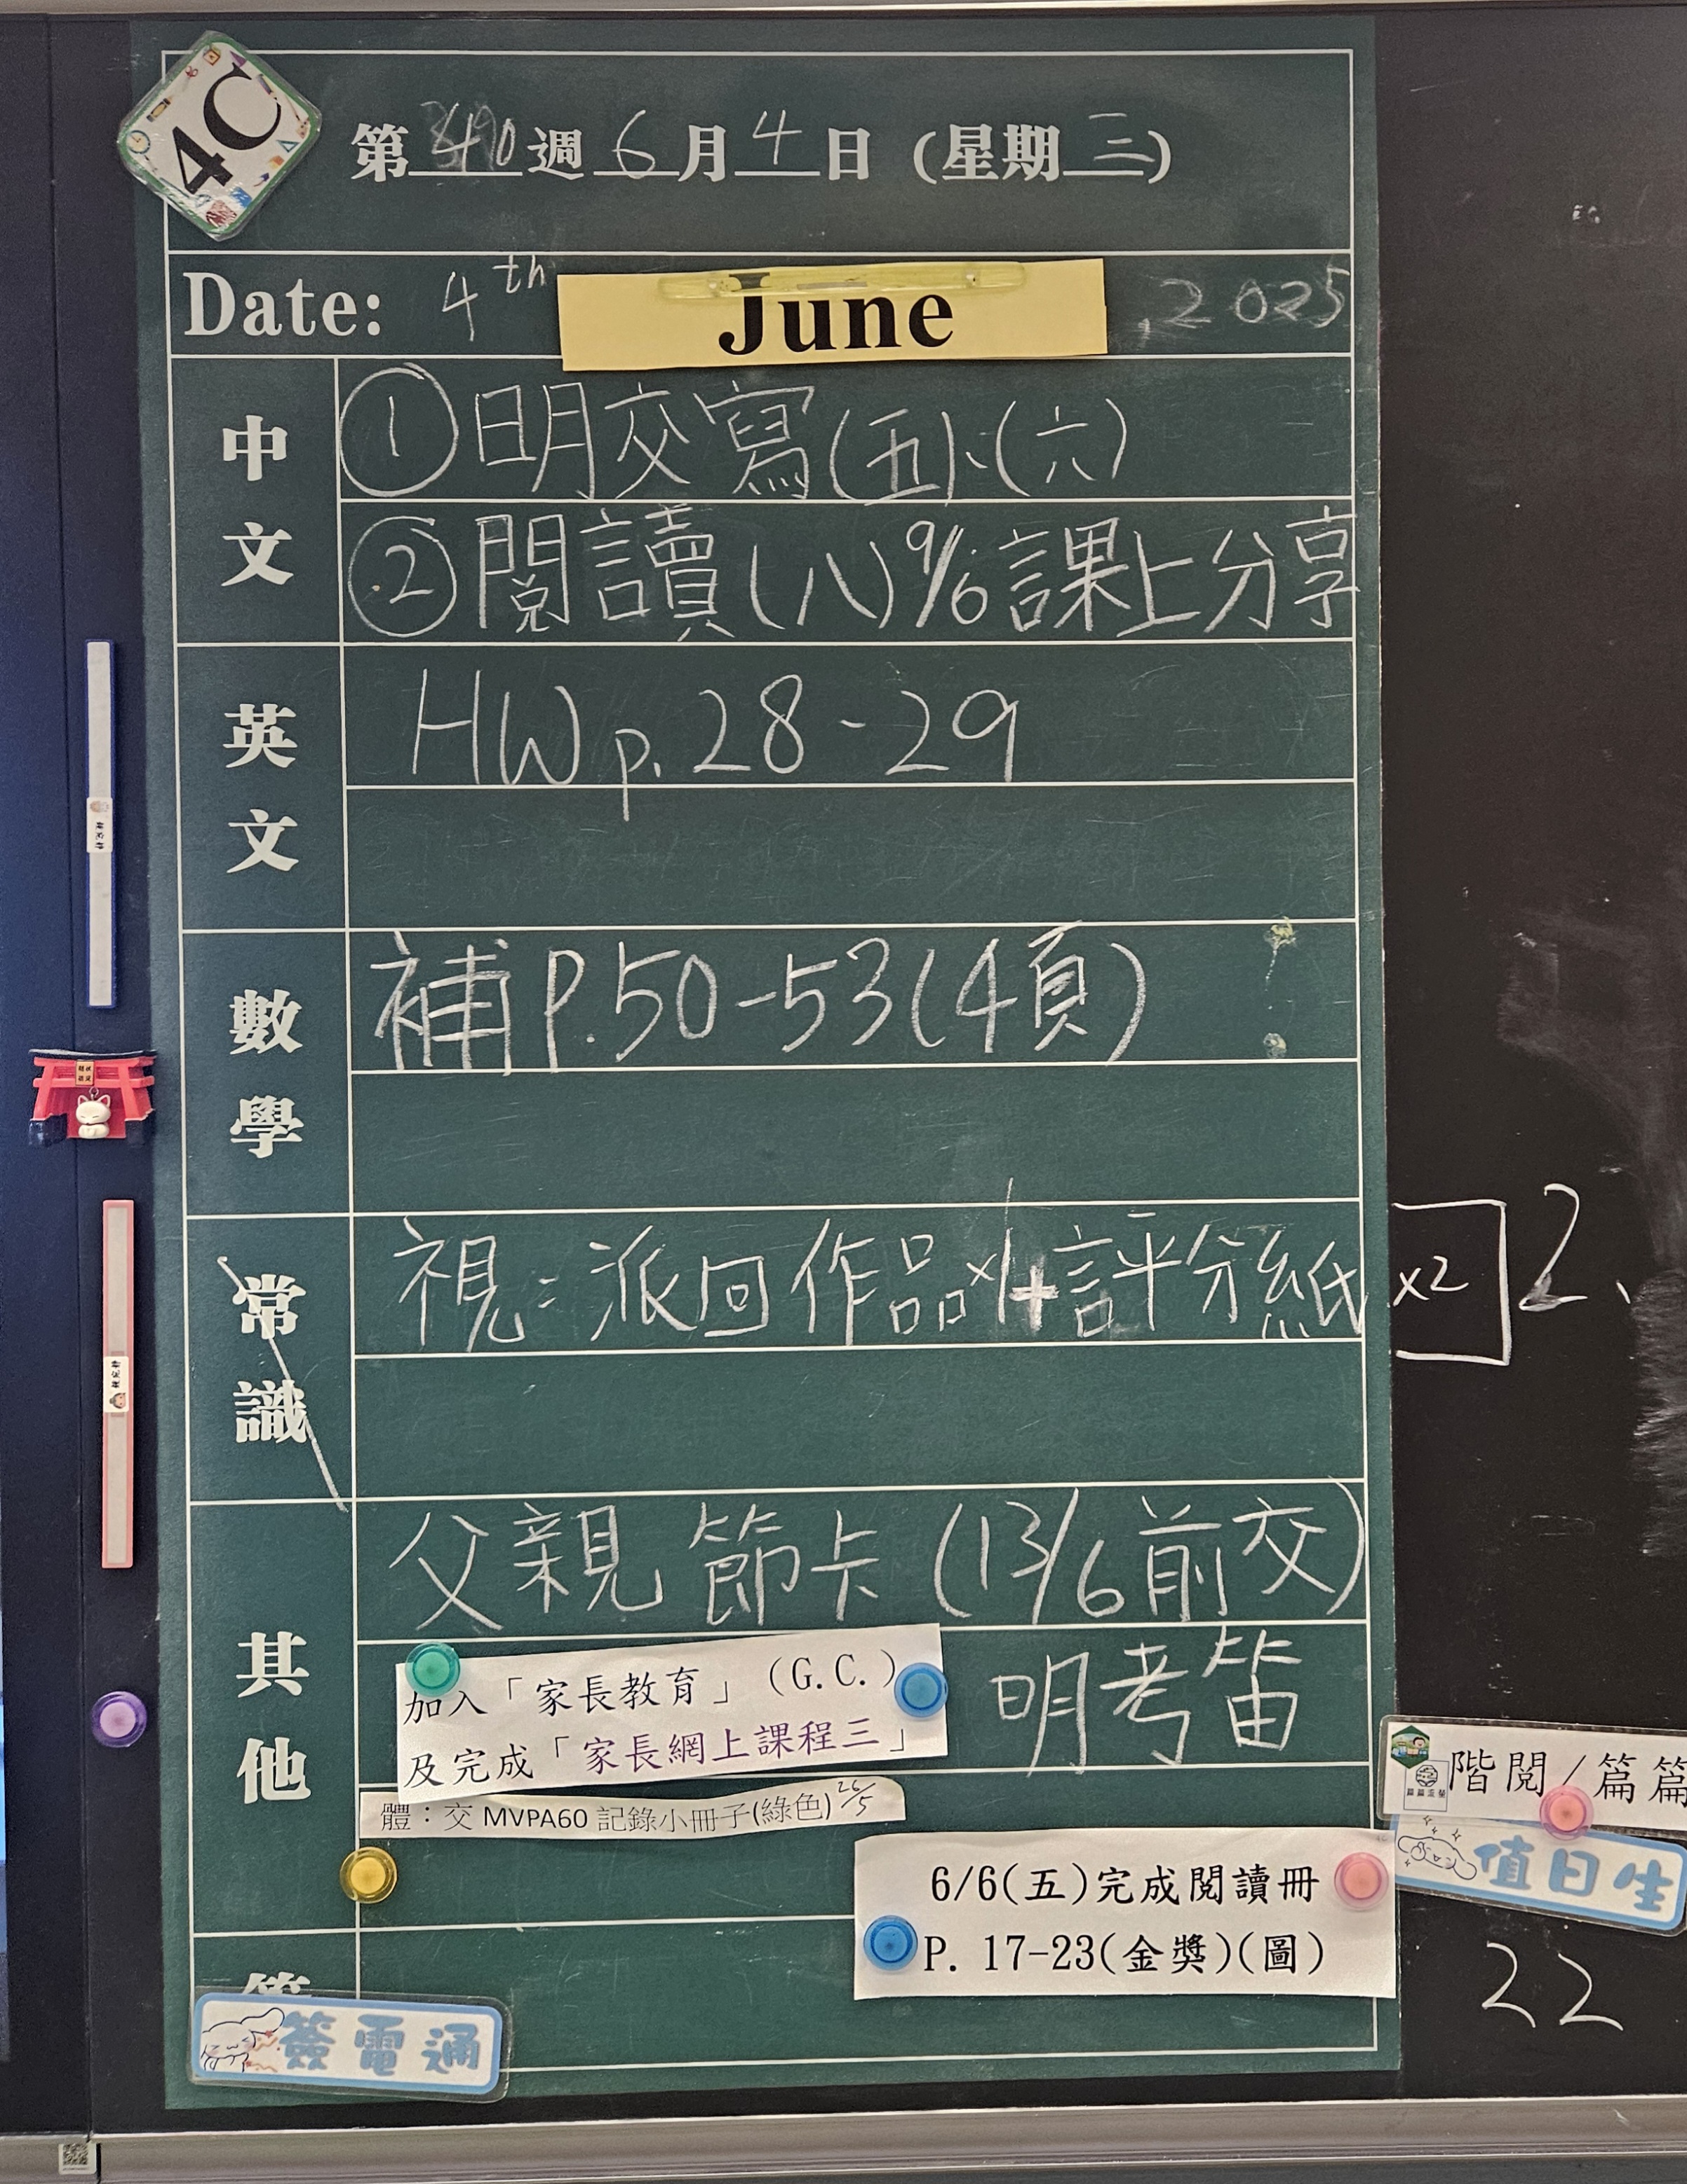 4C
第40週6月4日(星期三)
Date: 4th June, 2025
中文
①明交寫(五)、(六)
②閱讀(八)9/6課上分享
英文
HW p.28-29
數學
補P.50-53(4頁)
常識
視:派回作品x1+評分紙x2
2.
其他
父親節卡(13/6前交)
加入「家長教育」(G.C.)
及完成「家長網上課程三」
明考笛
體:交 MVPA60 記錄小冊子(綠色)26/5
6/6(五)完成閱讀冊
P. 17-23(金獎)(圖)
簽電通
階閱/篇篇
值日生
22